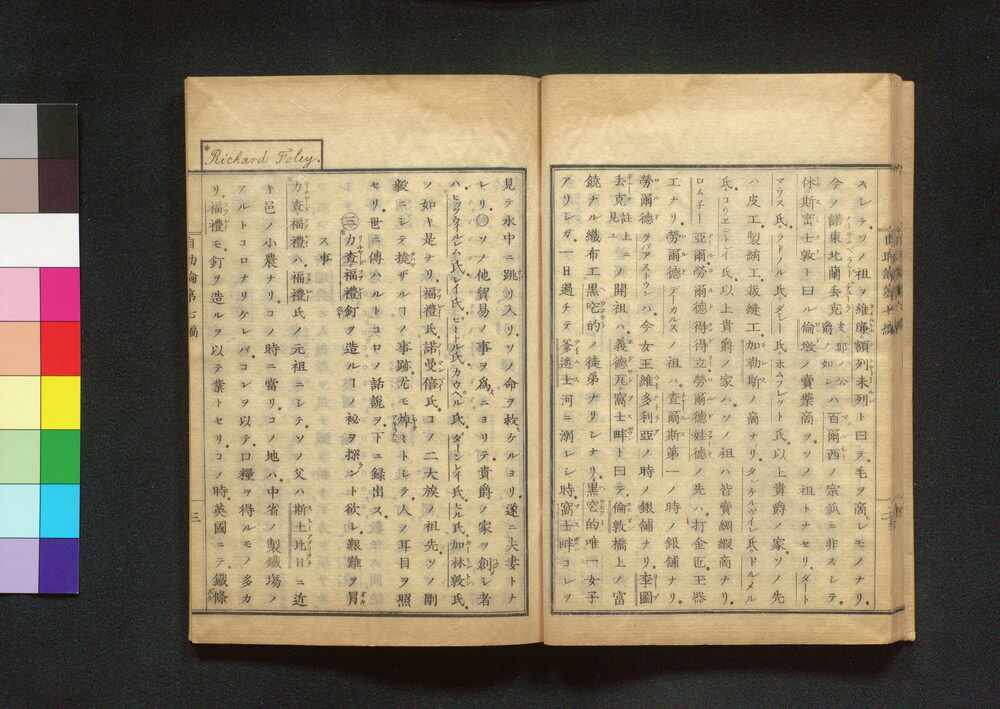 スレテソノ祖ヲ維廉額列未列ト曰テ毛ヲ商レモノナリ
今ノ諸東北蘭勇克ノ公ハ百爾西ノ宗派ニ非スレテ
休斯密士敦ト曰ル倫敦ノ賣藥商ヲソノ祖トナセリダート
マウス氏ラドノル氏ダシー氏ホムフレット氏以上貴爵ノ家ソノ先
ハ皮工製綃工裁縫工加勒斯ノ商ナリタンケルヴイン氏ドルメル
氏コヴエントレイ氏以上貴爵ノ家ハソノ祖ハ皆賣綢緞商ナリ
亞爾勞爾德得得立勞爾德娃德ノ先ハ打金匠玉器
工ナリ勞爾德デーカルスノ祖ハ查爾斯第一ノ時ノ銀舖ナリ
勞爾德ヲバアストウンハ今女王維多利亞ノ時ノ銀舖ナリ李圖
克註上ニ見ユソノ開祖ハ義德瓦窩士畔ト曰テ倫敦橋上ノ富
饒ナル織布工黑宅的ノ徒弟ナリレナリ黑宅的唯一女子
アリレガ一日過チテ答迷士河ニ溺レレ時窩士畔コレヲ
見テ氷中ニ跳リ入リソノ命ヲ救ケルヨリ遂ニ夫妻トナ
レリ○ソノ他貿易ノ事ヲ爲ニヨリテ貴爵ノ家ヲ創レ者
ハヒツヅイルレアム氏レイ氏ピートル氏カウペル氏ダーンレイ氏ヒル氏加林敦氏
ソノ如キ是ナリ福禮氏諾曼倍氏コノ二大族ノ祖先ソノ剛
毅ニレテ撓ザルコノ事跡尤モ焯々トレテ人ノ耳目ヲ照
セリ世ニ傳ハルトコロノ話說ヲ下ニ錄出ス
㊂力査福禮釘ヲ造ルコノ祕ヲ探ント欲レ艱難ヲ冐
ス事
力査福禮ハ福禮氏ノ元祖ニレテソノ父ハ斯土比日ニ近
キ邑ノ小農ナリコノ時ニ當リコノ地ハ中省ノ製鐵場ノ
アルトコロナリケレバコレヲ以テ口糧ヲ得ルモノ多カ
リ福禮モ釘ヲ造ルヲ以テ業トセリコノ時英國ニテ鐵條
Richard Foley.
自助論第七編
三